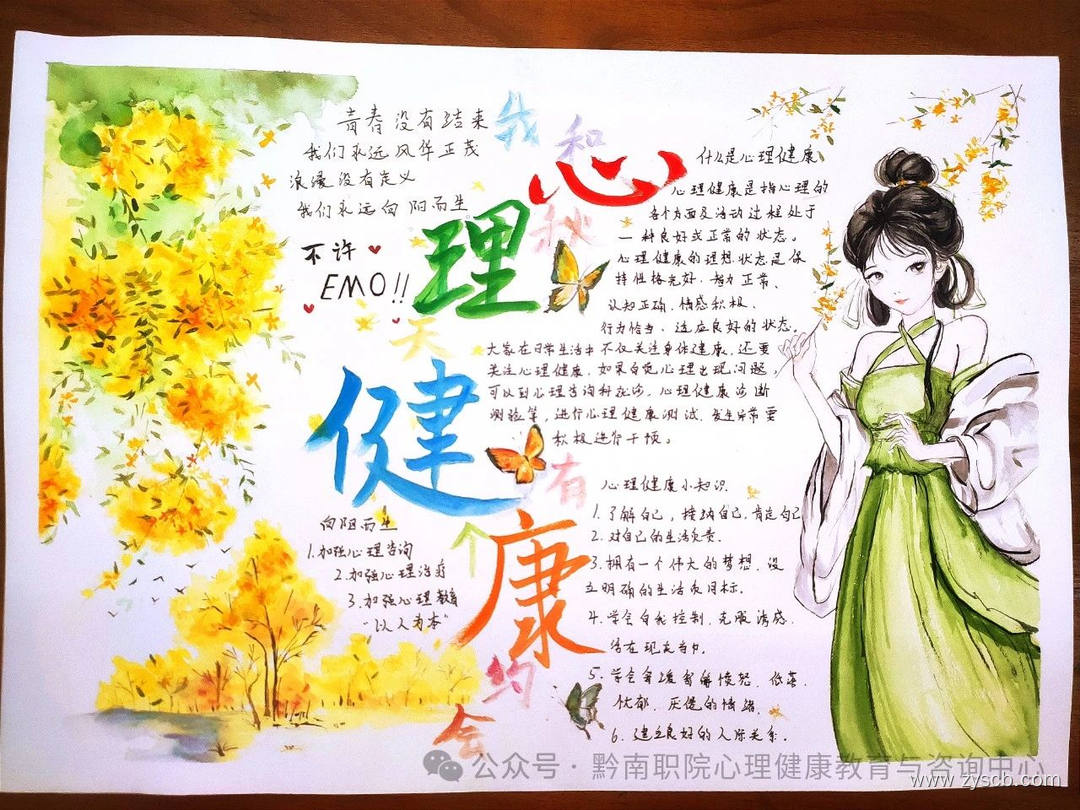 青春没有结束
我们永远风华正茂
浪漫没有定义
我们永远向阳而生
不许
EMO!!
我和秋天有约会
心理健康
向阳而生
1.加强心理咨询
2.加强心理治疗
3.加强心理教育
“以人为本”
什么是心理健康
心理健康是指心理的
各个方面及活动过程处于
一种良好或正常的状态。
心理健康的理想状态是保
持性格完好、智力正常、
认知正确、情感积极、
行为恰当、适应良好的状态。
大家在日常生活中不仅关注身体健康,还要
关注心理健康,如果自觉心理出现问题,
可以到心理咨询科就诊,心理健康诊断
测验等,进行心理健康测试,发生异常要
积极进行干预。
心理健康小知识
1.了解自己,接纳自己,肯定自己
2.对自己的生活负责。
3.拥有一个伟大的梦想,设
立明确的生活及目标。
4.学会自我控制,克服诱惑,
活在现在当中。
5.学会
愤怒、低落、
忧郁、厌倦的情绪。
6.建立良好的人际关系。
公众号·黔南职院心理健康教育与咨询中心
www.zyscb.com